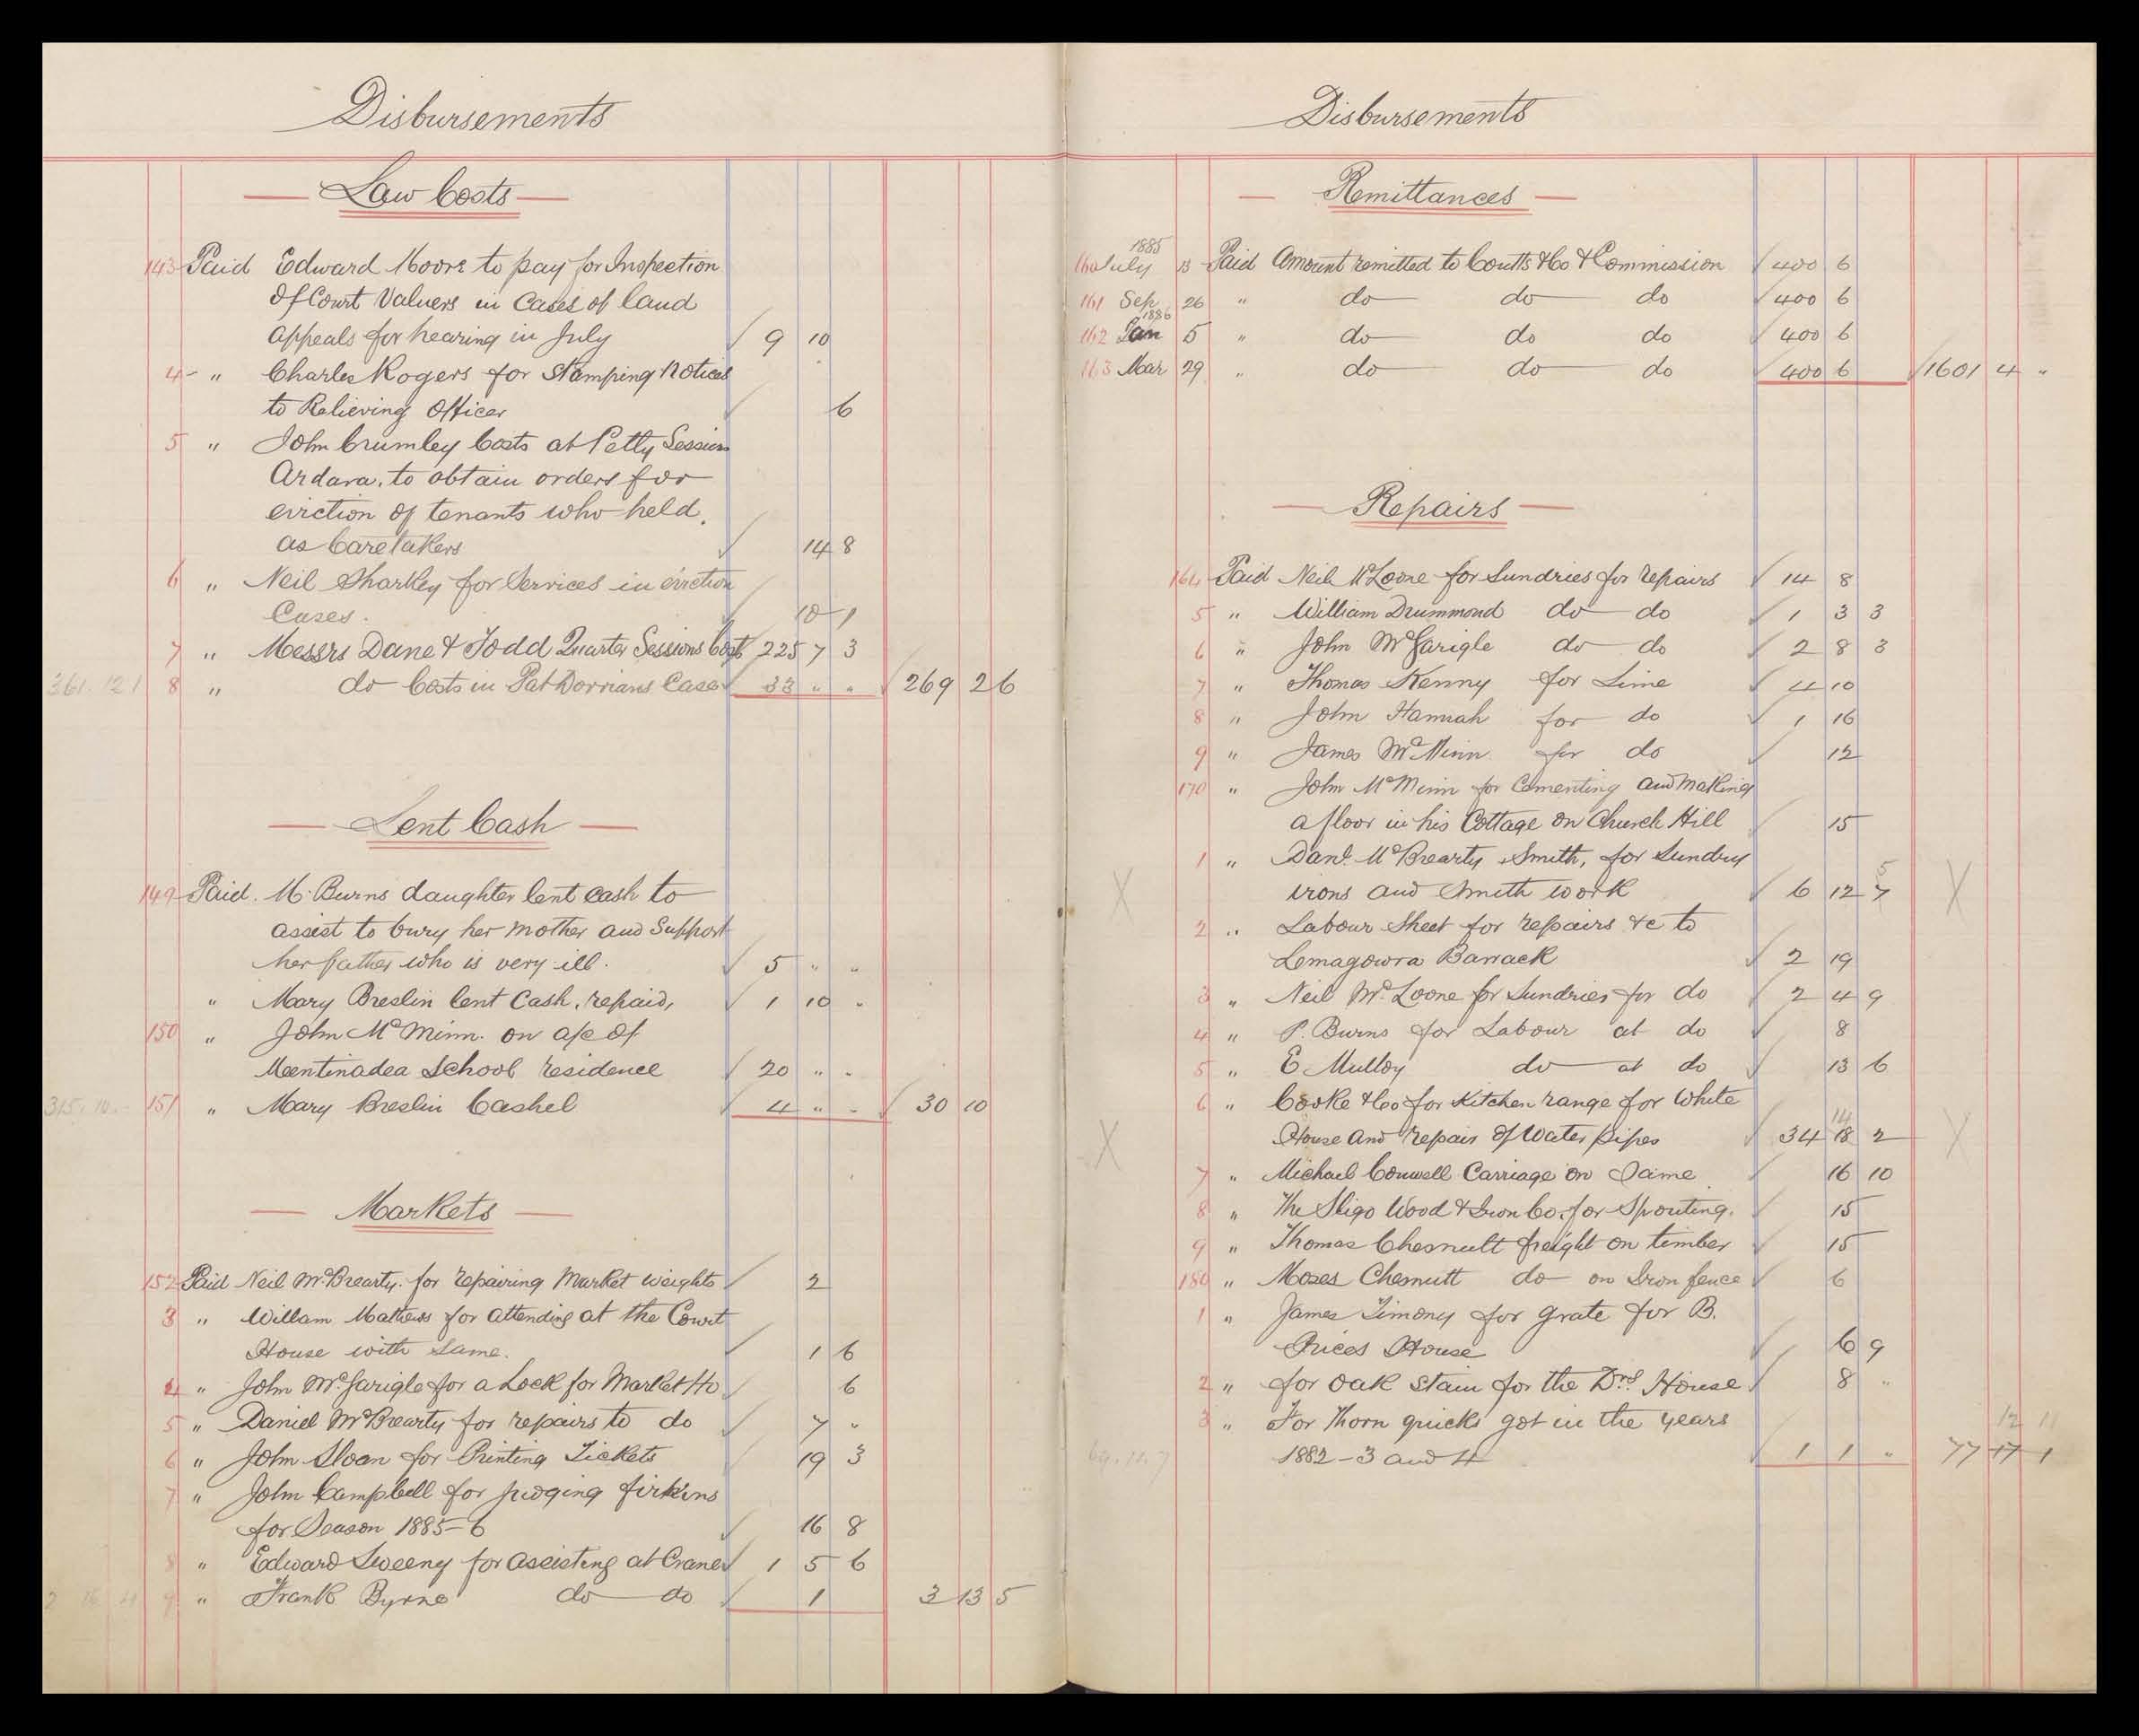 Disbursements
Law Costs
143 Paid Edward Moore to pay for Inspection
Of Court Valuers in Cases of land
appeals for hearing in July 9 10
4 " Charles Rogers for Stamping Notices
to Relieving Officer 6
5 " John Crumley Costs at Petty Session
Ardara. to obtain orders for
eviction of tenants who held
as Caretakers 14 8
6 " Neil Sharkey for Services in eviction
Cases. 10 1
7 " Messrs Dane & Todd Quarter Sessions Cost 225 7 3
361. 12 1 8 " do Costs in Pat Dorrians Case 33 " " 269 2 6
Lent Cash
149 Paid. M. Burns daughter lent cash to
assist to bury her mother and Support
her father who is very ill. 5 " "
" Mary Breslin lent Cash, repaid, 1 10 "
150 " John McMinn. on a/c of
Meentinadea School residence 20 " "
315. 10. - 151 " Mary Breslin Cashel 4 " " 30 10
Markets
152 Paid Neil McBrearty. for repairing Market weights 2
3 " William Mathews for attending at the Court
House with Same. 1 6
4 " John McGarigle for a Lock for Market Ho 6
5 " Daniel McBrearty for repairs to do 7 "
6 " John Sloan for Printing Tickets 19 3
7 " John Campbell for judging firkins
for Season 1885-6 16 8
8 " Edward Sweeny for assisting at Crane 1 5 6
9 " Frank Byrne do do 1 3 13 5
Disbursements
Remittances
1885
160 July 13 Paid Amount remitted to Coutts & Co & Commission 400 6
161 Sep 26 " do do do 400 6
1886
162 Jan 5 " do do do 400 6
163 Mar 29 " do do do 400 6 1601 4 "
Repairs
164 Paid Neil McLoone for Sundries for repairs 14 8
5 " William Drummond do do 1 3 3
6 " John McGarigle do do 2 8 3
7 " Thomas Kenny for Lime 4 10
8 " John Hannah for do 1 16
9 " James McMinn for do 12
170 " John McMinn for Cementing and Making
a floor in his Cottage on Church Hill 15
1 " Danl. McBrearty Smith, for Sundry
5
X irons and Smith work 6 12 7 X
2 " Labour Sheet for repairs &c to
Lemagowra Barrack 2 19
3 " Neil McLoone for Sundries for do 2 4 9
4 " P. Burns for Labour at do 8
5 " E Mulloy do at do 13 6
6 " Cooke & Co for Kitchen range for White
14
X House and repair of Water pipes 34 18 2 X
7 " Michael Conwell Carriage on Same 16 10
8 " The Sligo Wood & Iron Co. for Spouting. 15
9 " Thomas Chesnutt freight on timber 15
180 " Moses Chesnutt do on Iron fence 6
1 " James Timony for grate for B.
Prices House 6 9
2 " for Oak Stain for the Drs House 8 "
3 " For Thorn quicks got in the years
12 11
69. 11. 7 1882-3 and 4 1 1 " 77 17 1